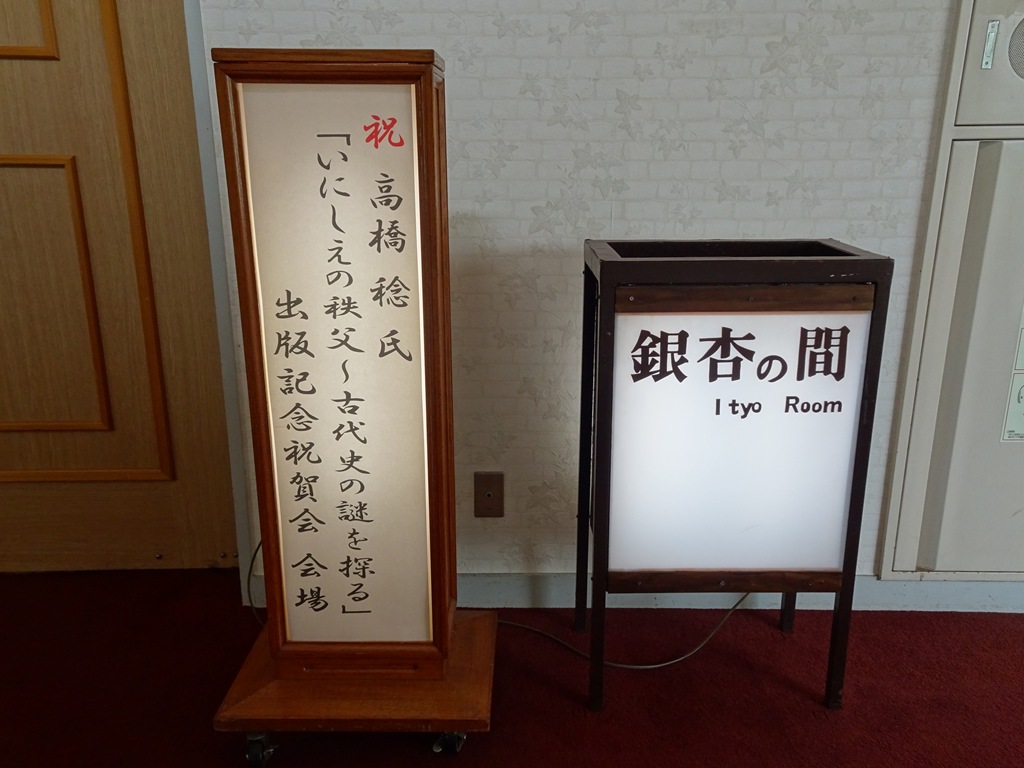 祝 高橋 稔 氏
「いにしえの秩父～古代史の謎を探る」
出版記念祝賀会 会場
銀杏の間
Ityo Room